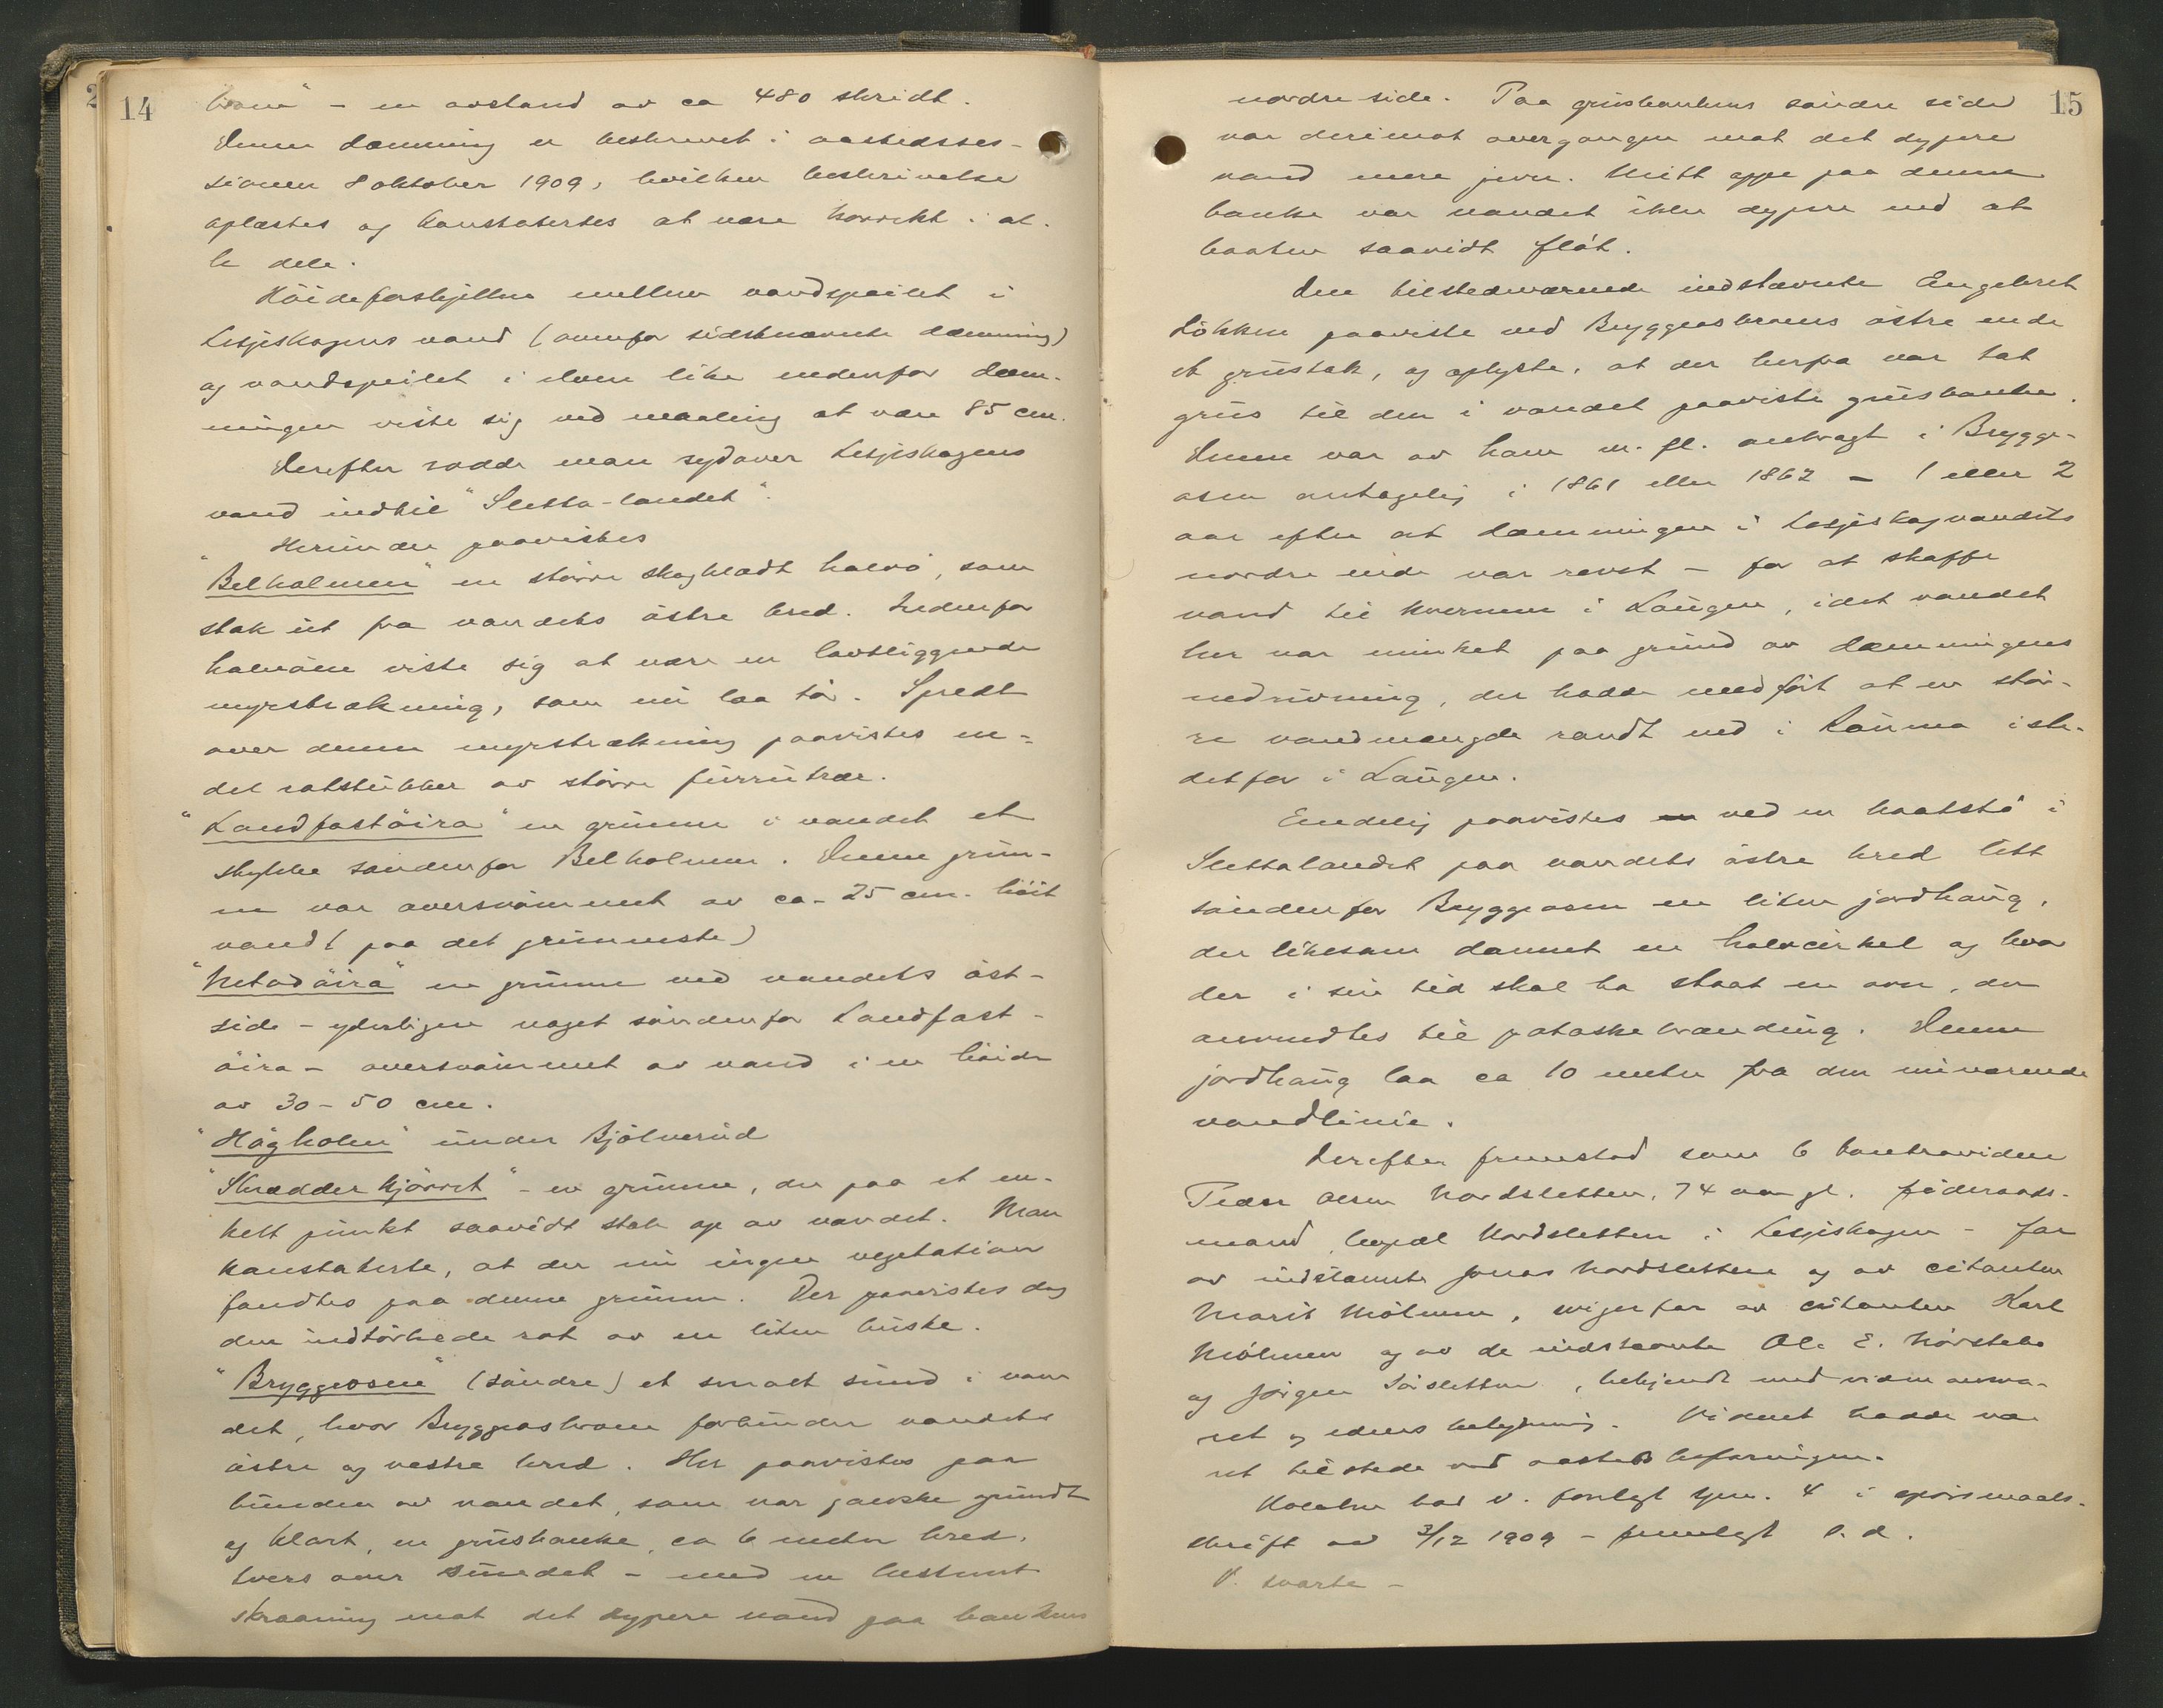 14
broen" - en avstand av ca 480 skridt.
Denne dæmning er beskrevet i aastedsses-
sionen 8 oktober 1909, hvilken beskrivelse
oplæstes og konstatertes at være korrekt i al-
le dele.
Höideforskjellen mellem vandspeilet i
Lesjeskogens vand (ovenfor sidstnævnte dæmning)
og vandspeilet i elven like nedenfor dæm-
ningen viste sig ved maaling at være 85 cm.
Derefter rodde man sydover Lesjeskogens
vand indtil "Sletta-landet".
Herunder paavistes
"Belholmen" en större skogklædt halvö, som
stak ut fra vandets östre bred. Indenfor
halvöen viste sig at være en lavtliggende
myrstrækning, som nu laa tör. Spredt
over denne myrstrækning paavistes en-
del rotstubber av större furutrær.
"Landfastöira" en grunne i vandet et
stykke söndenfor Belholmen. Denne grun-
ne var oversvömmet av ca. 25 cm. höit
vand (paa det grunneste)
"Netodöira" en grunne ved vandets öst-
side - yderligere noget söndenfor Landfast-
öira - oversvömmet av vand i en höide
av 30 - 50 cm.
"Högholm" under Bjölverud
"Skrædderkjörret" - en grunne, der paa et en-
kelt punkt saavidt stak op av vandet. Man
konstaterte, at der nu ingen vegetation
fandtes paa denne grunne. Der paavistes dog
den indtörkede rot av en liten buske.
"Bryggeosen" (söndre) et smalt sund i van
det, hvor Bryggeosbroen forbinder vandets
östre og vestre bred. Her paavistes paa
bunden av vandet, som var ganske grundt
og klart, en grusbanke, ca 6 meter bred,
tvers over sundet - med en bestemt
skraaning mot det dypere vand paa bankens
15
nordre side. Paa grusbankens söndre side
var derimot overgangen mot det dypere
vand mere jevn. Midt oppe paa denne
banke var vandet ikke dypere end at
baaten saavidt flöt.
Den tilstedeværende indstævnte Engebret
Lökken paaviste ved Bryggeosbroens östre ende
et grustak, og oplyste, at der herfra var tat
grus til den i vandet paaviste grusbanke.
Denne var av ham m. fl. anbragt i Brygge-
osen antagelig i 1861 eller 1862 - 1 eller 2
aar efter at dæmningen i Lesjeskogvandets
nordre ende var revet - for at skaffe
vand til kvernene i Laugen, idet vandet
her var minket paa grund av dæmningens
nedrivning, der hadde medfört at en stör-
re vandmængde randt ned i Rauma iste-
detfor i Laugen.
Endelig paavistes ved en baatstö i
Slettalandet paa vandets östre bred litt
söndenfor Bryggeosen en liten jordhaug,
der likesom dannet en halvcirkel og hvor
der i sin tid skal ha staat en ovn, der
anvendtes til potaskebrænding. Denne
jordhaug laa ca 10 meter fra den nuværende
vandlinie.
Derefter fremstod som 6 kontravidne
Peder Olsen Nordsletten, 74 aar gl. föderaads-
mand, bopæl Nordsletten i Lesjeskogen - far
av indstævnte Jonas Nordsletten og av citanten
Marit Mölmen, svigerfar av citanten Karl
Mölmen og av de indstævnte Ole E. Nörstebö
og Jörgen Söisletten, bekjendt med vidneansva-
ret og edens betydning. Vidnet hadde væ-
ret tilstede ved aastedsbefaringen.
Holaker bad v. forelagt spm. 4 i spörsmaals-
skrift av 3/12 1909 - fremlagt s. d.
V. svarte -